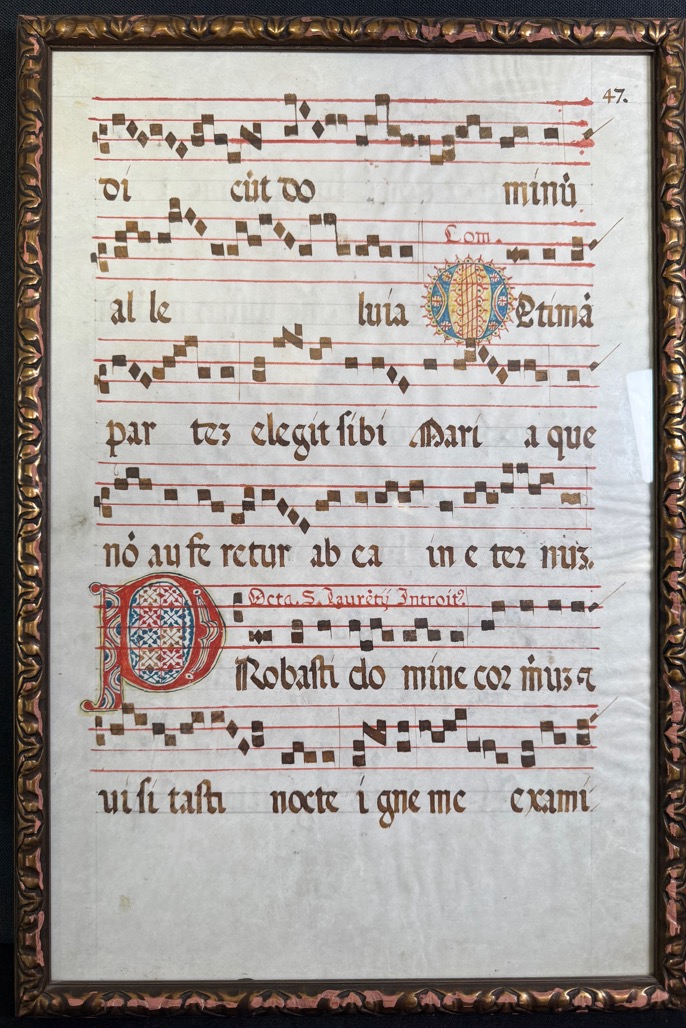 47.
di cūt do minū
al le luia Com. Optimā
par teꝫ elegit sibi Mari a que
nō au fe retur ab ea in e ter nuꝫ.
Octa. S. Laurētij Introit⁹.
PRobasti do mine cor m̄uꝫ ⁊
ui si tasti nocte i gne me exami